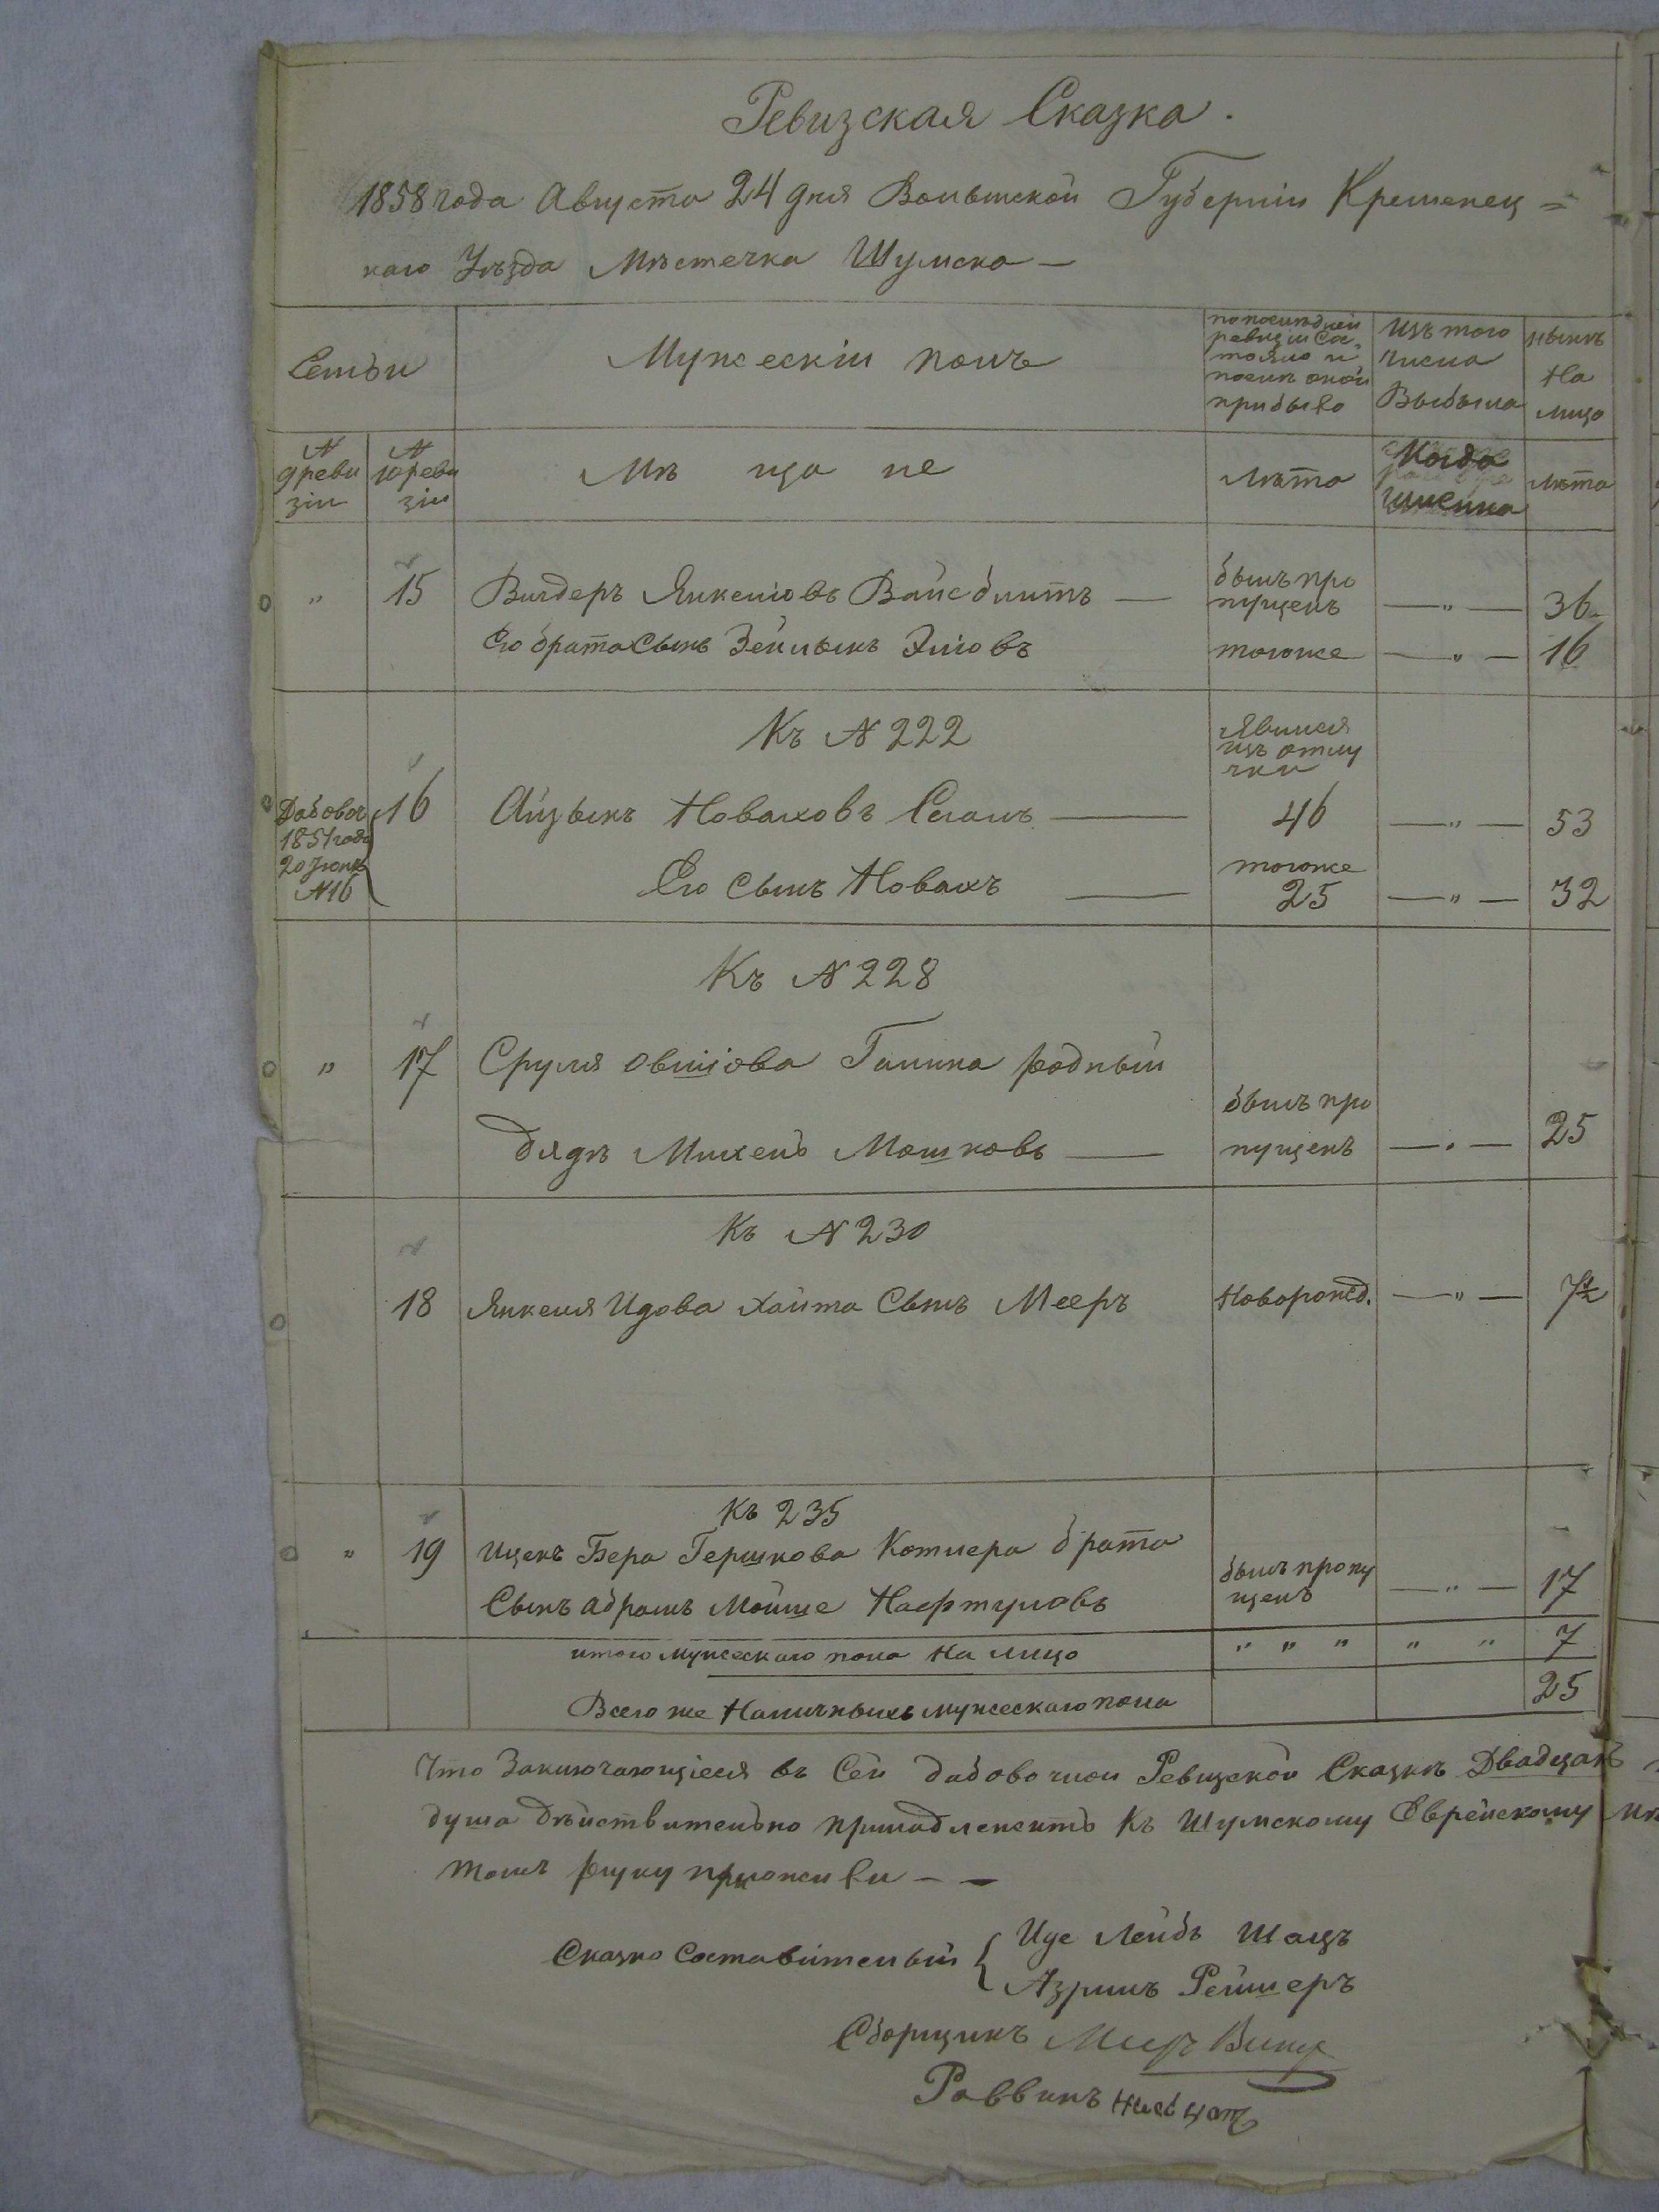 Ревизская Сказка.
1858 года Августа 24 дня Волынской Губерніи Кременец=
каго Уѣзда Мѣстечка Шумска —
Семьи
Мужескій полъ
по послѣдней ревизіи состояло и послѣ оной прибыло
Изъ того числа Выбыло
нынѣ На лицо
№ 9 ревизіи
№ 10 ревизіи
Мѣ ща не
лѣта
Когда именно
лѣта
" 15 Вигдеръ Янкелiовъ Вайсблитъ — былъ пропущенъ — " — 36
Его брата Сынъ Зейлыкъ Элiовъ тогоже — " — 16
Къ № 222
Явился изъ отлучки
Добовоч 1851 года 20 Іюня №16
16 Айзыкъ Новаховъ Селаль — 46 — " — 53
Его Сынъ Новахъ — тогоже 25 — " — 32
Къ № 228
" 17 Сруля Овшіова Галика родный
дядѣ Михель Мошковъ — былъ пропущенъ — " — 25
Къ № 230
18 Янкеля Идова Хаита Сынъ Мееръ Новорожд. — " — 7½
Къ 235
" 19 Ицекъ Бера Гершкова Котлера брата
Сынъ Абрамъ Мойше Нафтуловъ былъ пропущенъ — " — 17
итого мужескаго пола На лицо " " " " " 7
Всего же Наличныхъ мужескаго пола 25
Что Заключающіеся въ Сей добовочной Ревизской Сказкѣ Двадцать
душа дѣйствительно принадлежитъ Къ Шумскому Еврейскому
томъ руку приложили — —
Сказко Составительи { Иде Лейбъ Шацъ
Азриль Рейшеръ
Сборщикъ
Раввинъ